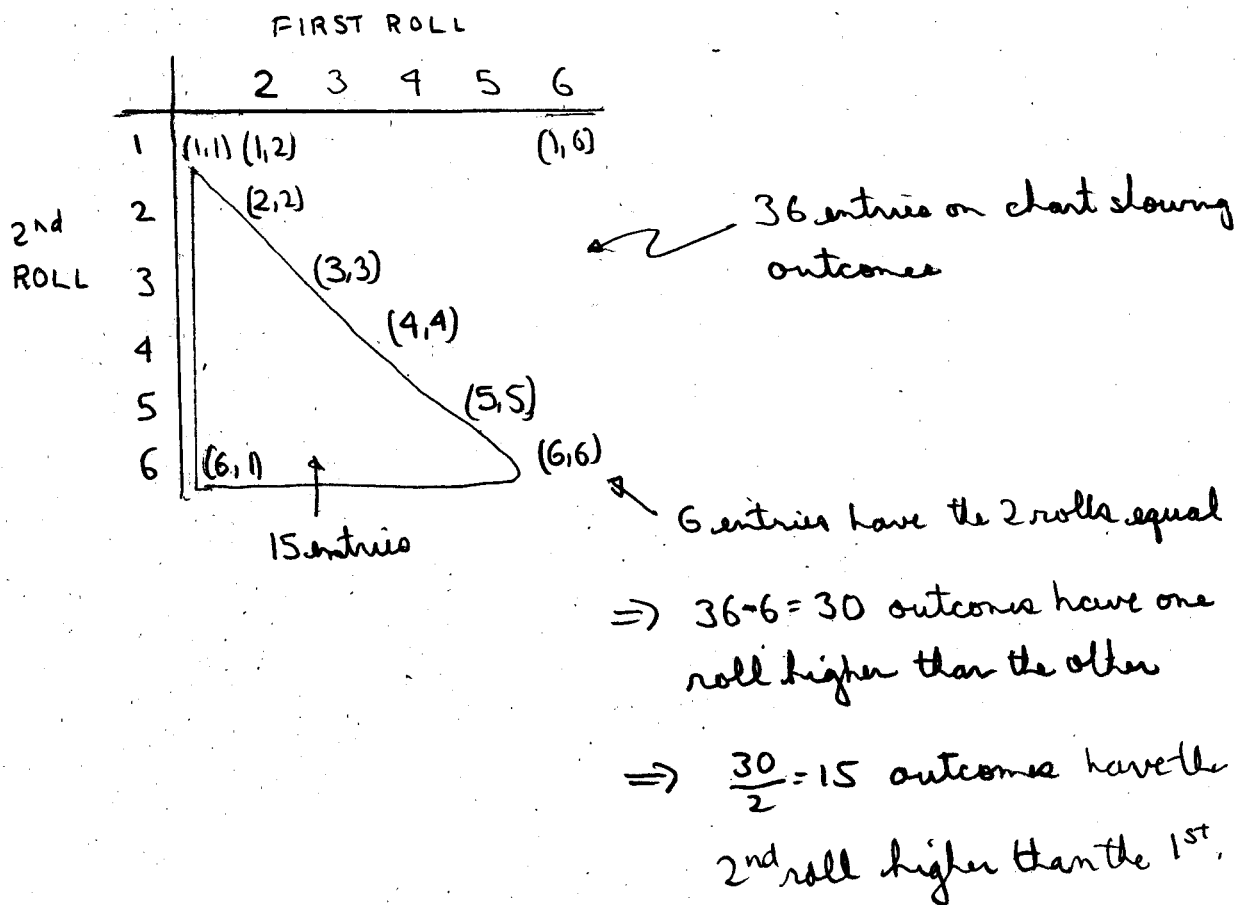 FIRST ROLL
2 3 4 5 6
1 (1,1) (1,2) (1,6)
2 (2,2)
2nd
ROLL
3 (3,3)
4 (4,4)
5 (5,5)
6 (6,1) (6,6)
15 entries
36 entries on chart showing
outcomes
6 entries have the 2 rolls equal
⇒ 36-6=30 outcomes have one
roll higher than the other
⇒ 30/2 = 15 outcomes have the
2nd roll higher than the 1st.